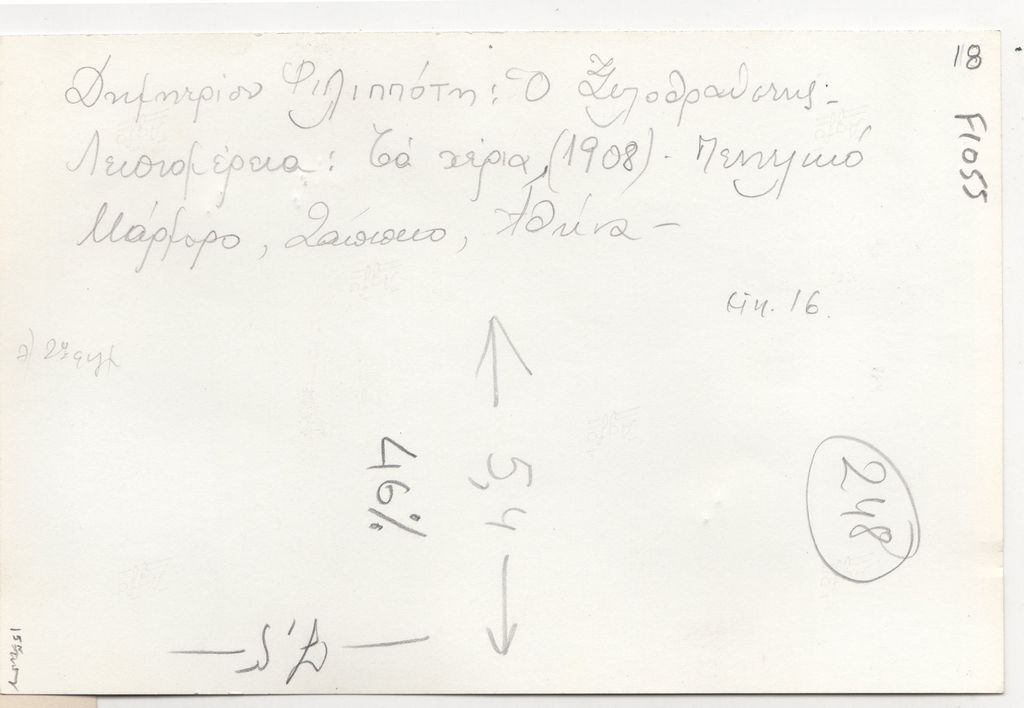 Δημητρίου Φιλιππότη: Ὁ Ξυλοθραύστης -
Λεπτομέρεια: Τά χέρια, (1908). Πεντελικό
Μάρμαρο, Ζάππειο, Ἀθήνα -
18
F1055
Εἰκ. 16.
5,4
46%
248